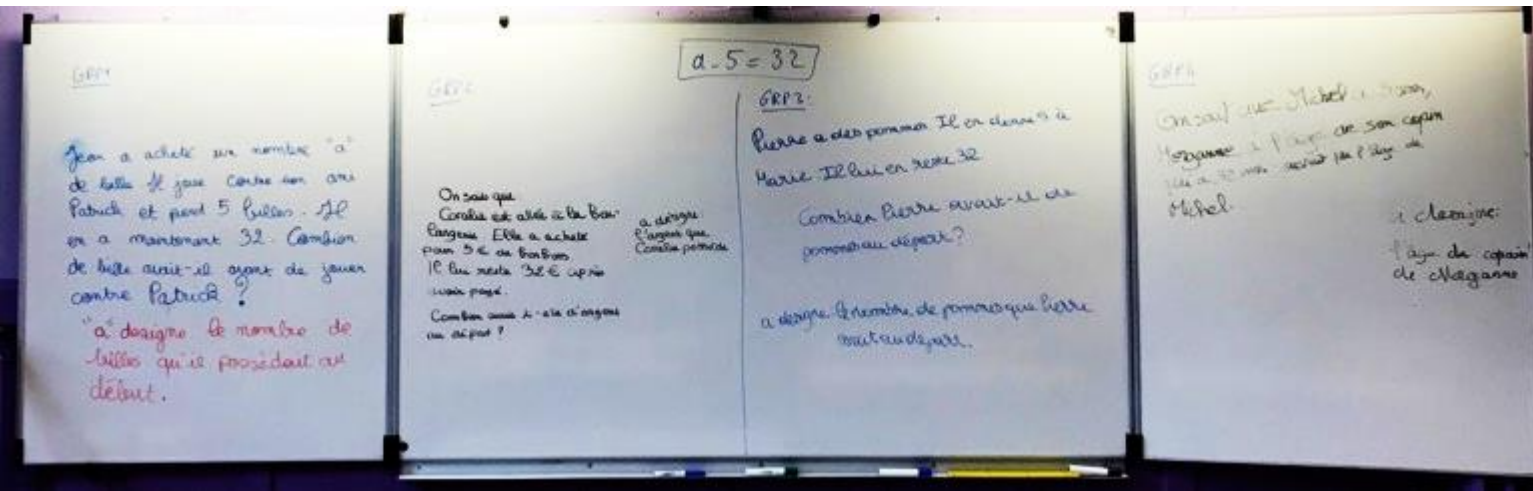 a - 5 = 32
GRP1
Jean a acheté un nombre "a"
de bille Il joue contre son ami
Patrick et perd 5 billes. Il
en a maintenant 32. Combien
de bille avait-il avant de jouer
contre Patrick ?
"a" designe le nombre de
billes qu'il possédait au
début.
GRP2
On sais que
Coralie est allée à la Bou-
langerie Elle a acheté
pour 5 € de BonBons
Il lui reste 32 € après
avoir payé.
Combien d'argent
au départ ?
a désigne
l'argent que
Coralie
GRP3:
Pierre a des pommes Il en donne 5 à
Marie. Il lui en reste 32
Combien Pierre avait-il de
pommes au départ ?
a designe le nombre de pommes que Pierre
avait au départ.
GRP4
On sait que Michel a
Morganne a l'age de son copain
l'âge de
Michel.
l'age du copain
de Morganne